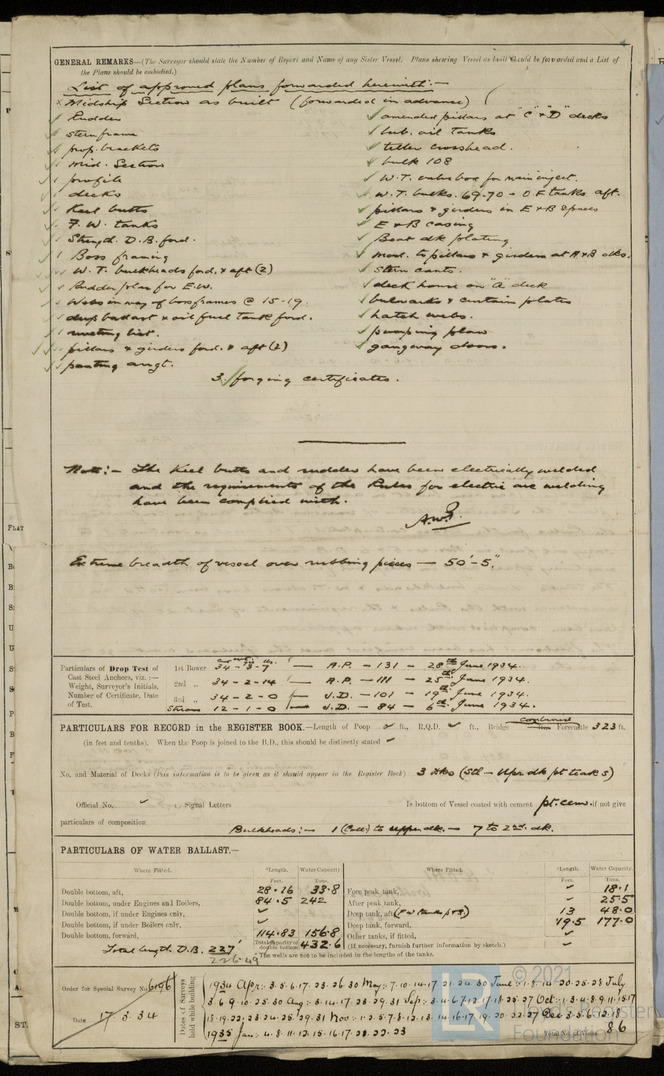 GENERAL REMARKS—(The Surveyor should state the Number of Report and Name of any Sister Vessel. Plans shewing Vessel as built should be forwarded and a List of
the Plans should be embodied.)
List of approved plans forwarded herewith:—
Midship Section as built (forwarded in advance)
Rudder
Sternframe
prop. brackets
Mid. Section
profile
decks
Keel butts
F.W. tanks
Strength. D.B. ford.
Boss framing
W.T. bulkheads ford. & aft (2)
Rudder plan for E.W.
Webs in way of boss frames @ 15-19.
deep ballast & oil fuel tank ford.
riveting list.
pillars & girders ford. & aft (2)
panting arrgt.
amended pillars at "C" & "D" decks
lub. oil tanks
tiller crosshead.
bulk 108
W.T. valve box for main inject.
W.T. bulks. 69-70 - O.F. tanks aft.
pillars & girders in E & B spaces
E & B casing
Boat dk plating
mod. to pillars & girders at A & B dks.
Stern cants.
deck house on "A" deck
bulwarks & curtain plates
hatch webs.
pumping plan
gangway doors.
3 forging certificates.
Note:— The keel butts and rudder have been electrically welded
and the requirements of the Rules for electric arc welding
have been complied with.
Extreme breadth of vessel over rubbing pieces — 50'-5".
Particulars of Drop Test of
Cast Steel Anchors, viz. :—
Weight, Surveyor's Initials,
Number of Certificate, Date
of Test.
1st Bower 34-3-7 — A.P. — 131 — 28th June 1934.
2nd „ 34-2-14 — A.P. — 111 — 25th June 1934.
3rd „ 34-2-0 — J.D. — 101 — 19th June 1934.
Stream 12-1-0 — J.D. — 84 — 6th June 1934.
PARTICULARS FOR RECORD in the REGISTER BOOK.—Length of Poop ft., R.Q.D. ft., Bridge combined Forecastle 323 ft.
(in feet and tenths). When the Poop is joined to the B.D., this should be distinctly stated
No. and Material of Decks (this information is to be given as it should appear in the Register Book) 3 dks (Stl — Upr dk pt teak S)
Official No. Signal Letters Is bottom of Vessel coated with cement pt. cem. if not give
particulars of composition
Bulkheads:— 1 (Coll) to upper dk. — 7 to 2nd. dk.
PARTICULARS OF WATER BALLAST.—
Where Fitted. *Length. Feet. Water Capacity. Tons.
Double bottom, aft, 28.16 33.8
Double bottom, under Engines and Boilers, 84.5 242
Double bottom, if under Engines only,
Double bottom, if under Boilers only,
Double bottom, forward, 114.83 156.8
Total capacity of double bottom 432.6
Total length D.B. 227'
226.49
Where Fitted. *Length. Feet. Water Capacity. Tons.
Fore peak tank, 18.1
After peak tank, 25.5
Deep tank, aft, (F.W. tanks P&S) 13 48.0
Deep tank, forward, 19.5 177.0
Other tanks, if fitted,
(If necessary, furnish further information by sketch.)
*The wells are not to be included in the lengths of the tanks.
Order for Special Survey No. 6196
Date 17.3.34
Dates of Surveys
held while building
1934 Apr:
May:
June:
July
Aug:
Sep:
Oct:
Nov:
Dec
1935 Jan: 4.8.11.12.15.16.17.21.22.23
86
© 2021
LR
Lloyd's Register
Foundation